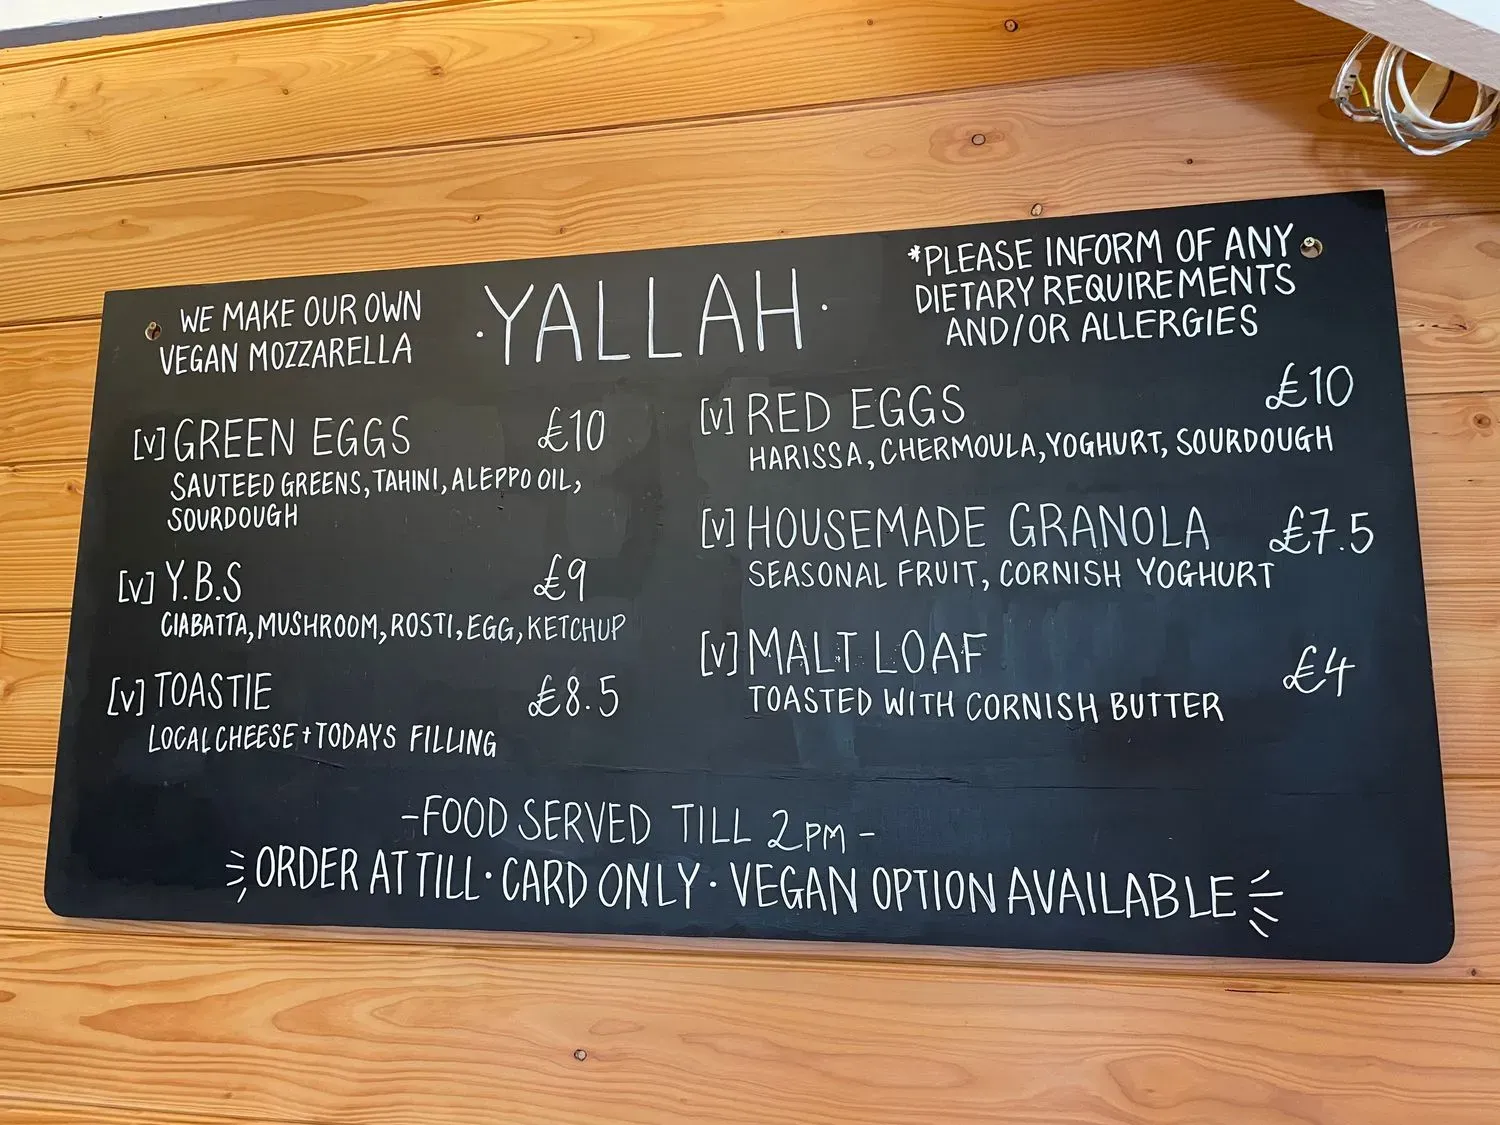 WE MAKE OUR OWN
VEGAN MOZZARELLA
·YALLAH·
*PLEASE INFORM OF ANY
DIETARY REQUIREMENTS
AND/OR ALLERGIES
[V] GREEN EGGS £10
SAUTEED GREENS, TAHINI, ALEPPO OIL,
SOURDOUGH
[V] Y.B.S £9
CIABATTA, MUSHROOM, ROSTI, EGG, KETCHUP
[V] TOASTIE £8.5
LOCAL CHEESE + TODAYS FILLING
[V] RED EGGS £10
HARISSA, CHERMOULA, YOGHURT, SOURDOUGH
[V] HOUSEMADE GRANOLA £7.5
SEASONAL FRUIT, CORNISH YOGHURT
[V] MALT LOAF £4
TOASTED WITH CORNISH BUTTER
-FOOD SERVED TILL 2PM-
ORDER AT TILL · CARD ONLY · VEGAN OPTION AVAILABLE